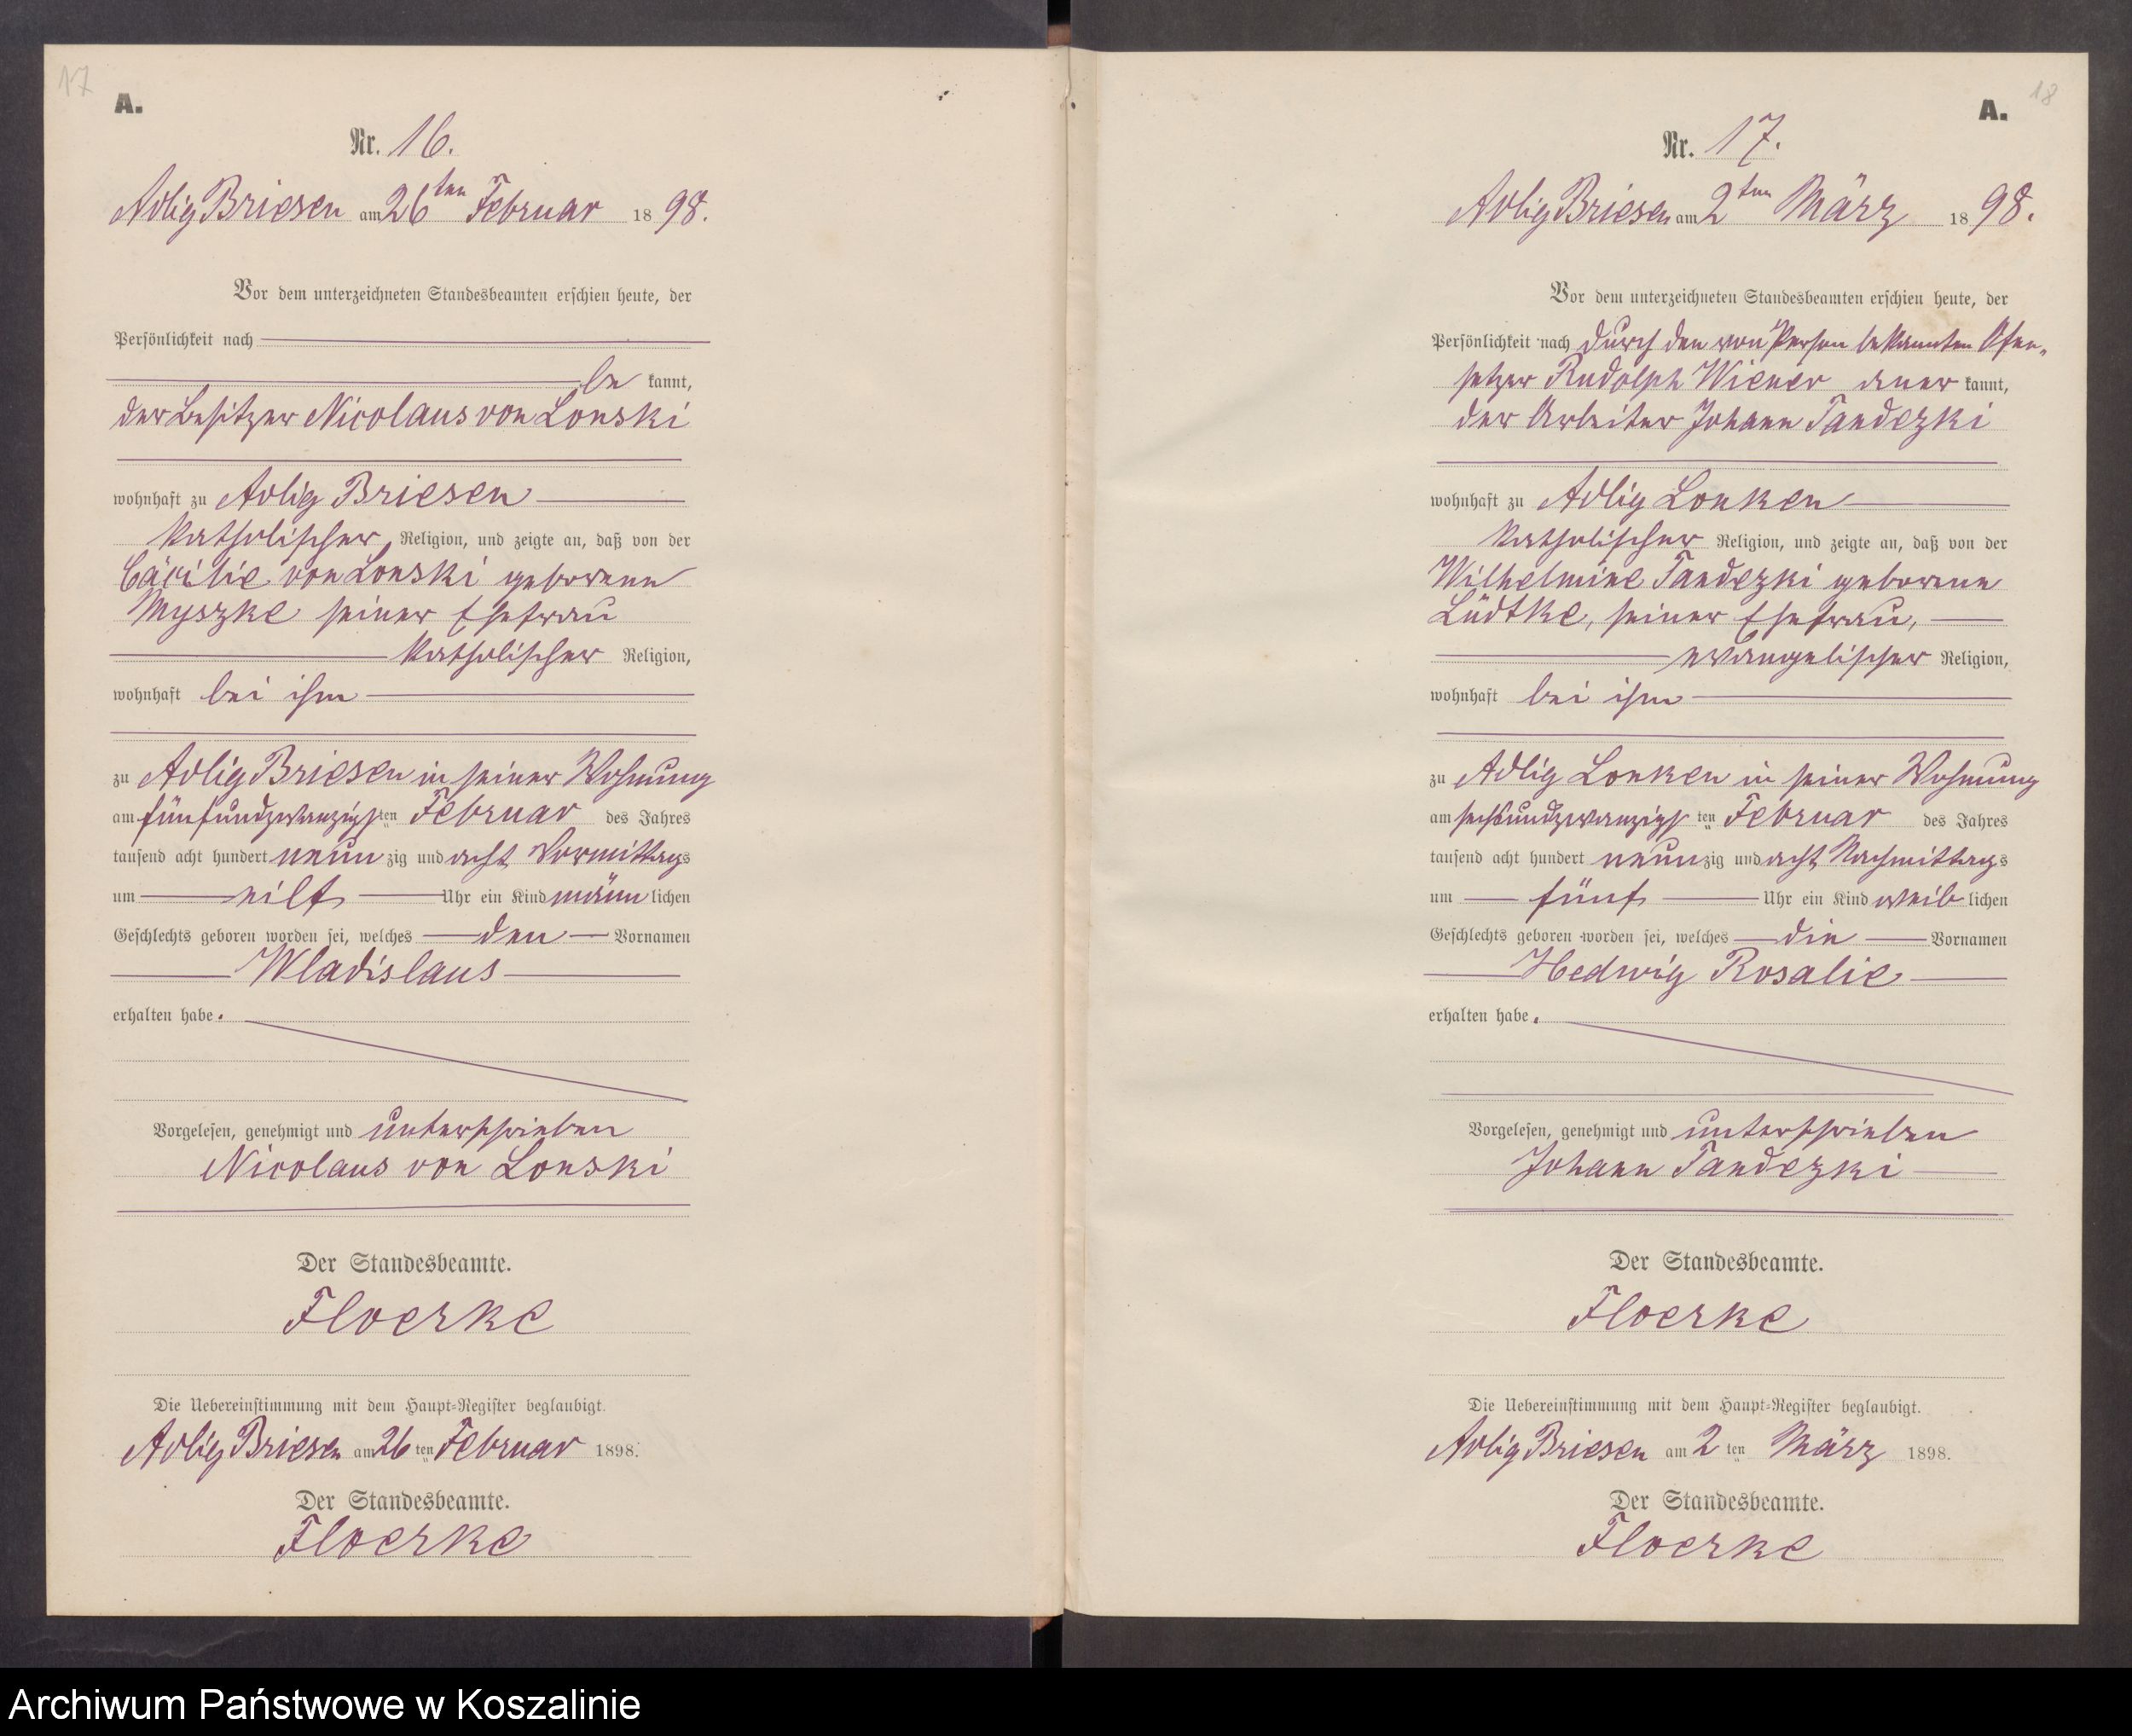 17
A.
Nr. 16.
Adlig Briesen am 26ten Februar 1898.
Vor dem unterzeichneten Standesbeamten erschien heute, der
Persönlichkeit nach
be kannt,
der Besitzer Nicolaus von Lonski
wohnhaft zu Adlig Briesen
katholischer Religion, und zeigte an, daß von der
Cäcilie von Lonski geborene
Myszke seiner Ehefrau
katholischer Religion,
wohnhaft bei ihm
zu Adlig Briesen in seiner Wohnung
am fünfundzwanzigsten Februar des Jahres
tausend acht hundert neunzig und acht Vormittags
um eilf Uhr ein Kind männlichen
Geschlechts geboren worden sei, welches den Vornamen
Wladislaus
erhalten habe.
Vorgelesen, genehmigt und unterschrieben
Nicolaus von Lonski
Der Standesbeamte.
Floerke
Die Uebereinstimmung mit dem Haupt-Register beglaubigt.
Adlig Briesen am 26ten Februar 1898.
Der Standesbeamte.
Floerke
18
A.
Nr. 17.
Adlig Briesen am 2ten März 1898.
Vor dem unterzeichneten Standesbeamten erschien heute, der
Persönlichkeit nach durch den von Person bekannten Ofen-
setzer Rudolph Wiener aner kannt,
der Arbeiter Johann Tandezki
wohnhaft zu Adlig Lonken
katholischer Religion, und zeigte an, daß von der
Wilhelmine Tandezki geborene
Lüdtke, seiner Ehefrau,
evangelischer Religion,
wohnhaft bei ihm
zu Adlig Lonken in seiner Wohnung
am sechsundzwanzigsten Februar des Jahres
tausend acht hundert neunzig und acht Nachmittags
um fünf Uhr ein Kind weiblichen
Geschlechts geboren worden sei, welches die Vornamen
Hedwig Rosalie
erhalten habe.
Vorgelesen, genehmigt und unterschrieben
Johann Tandezki
Der Standesbeamte.
Floerke
Die Uebereinstimmung mit dem Haupt-Register beglaubigt.
Adlig Briesen am 2ten März 1898.
Der Standesbeamte.
Floerke
Archiwum Państwowe w Koszalinie